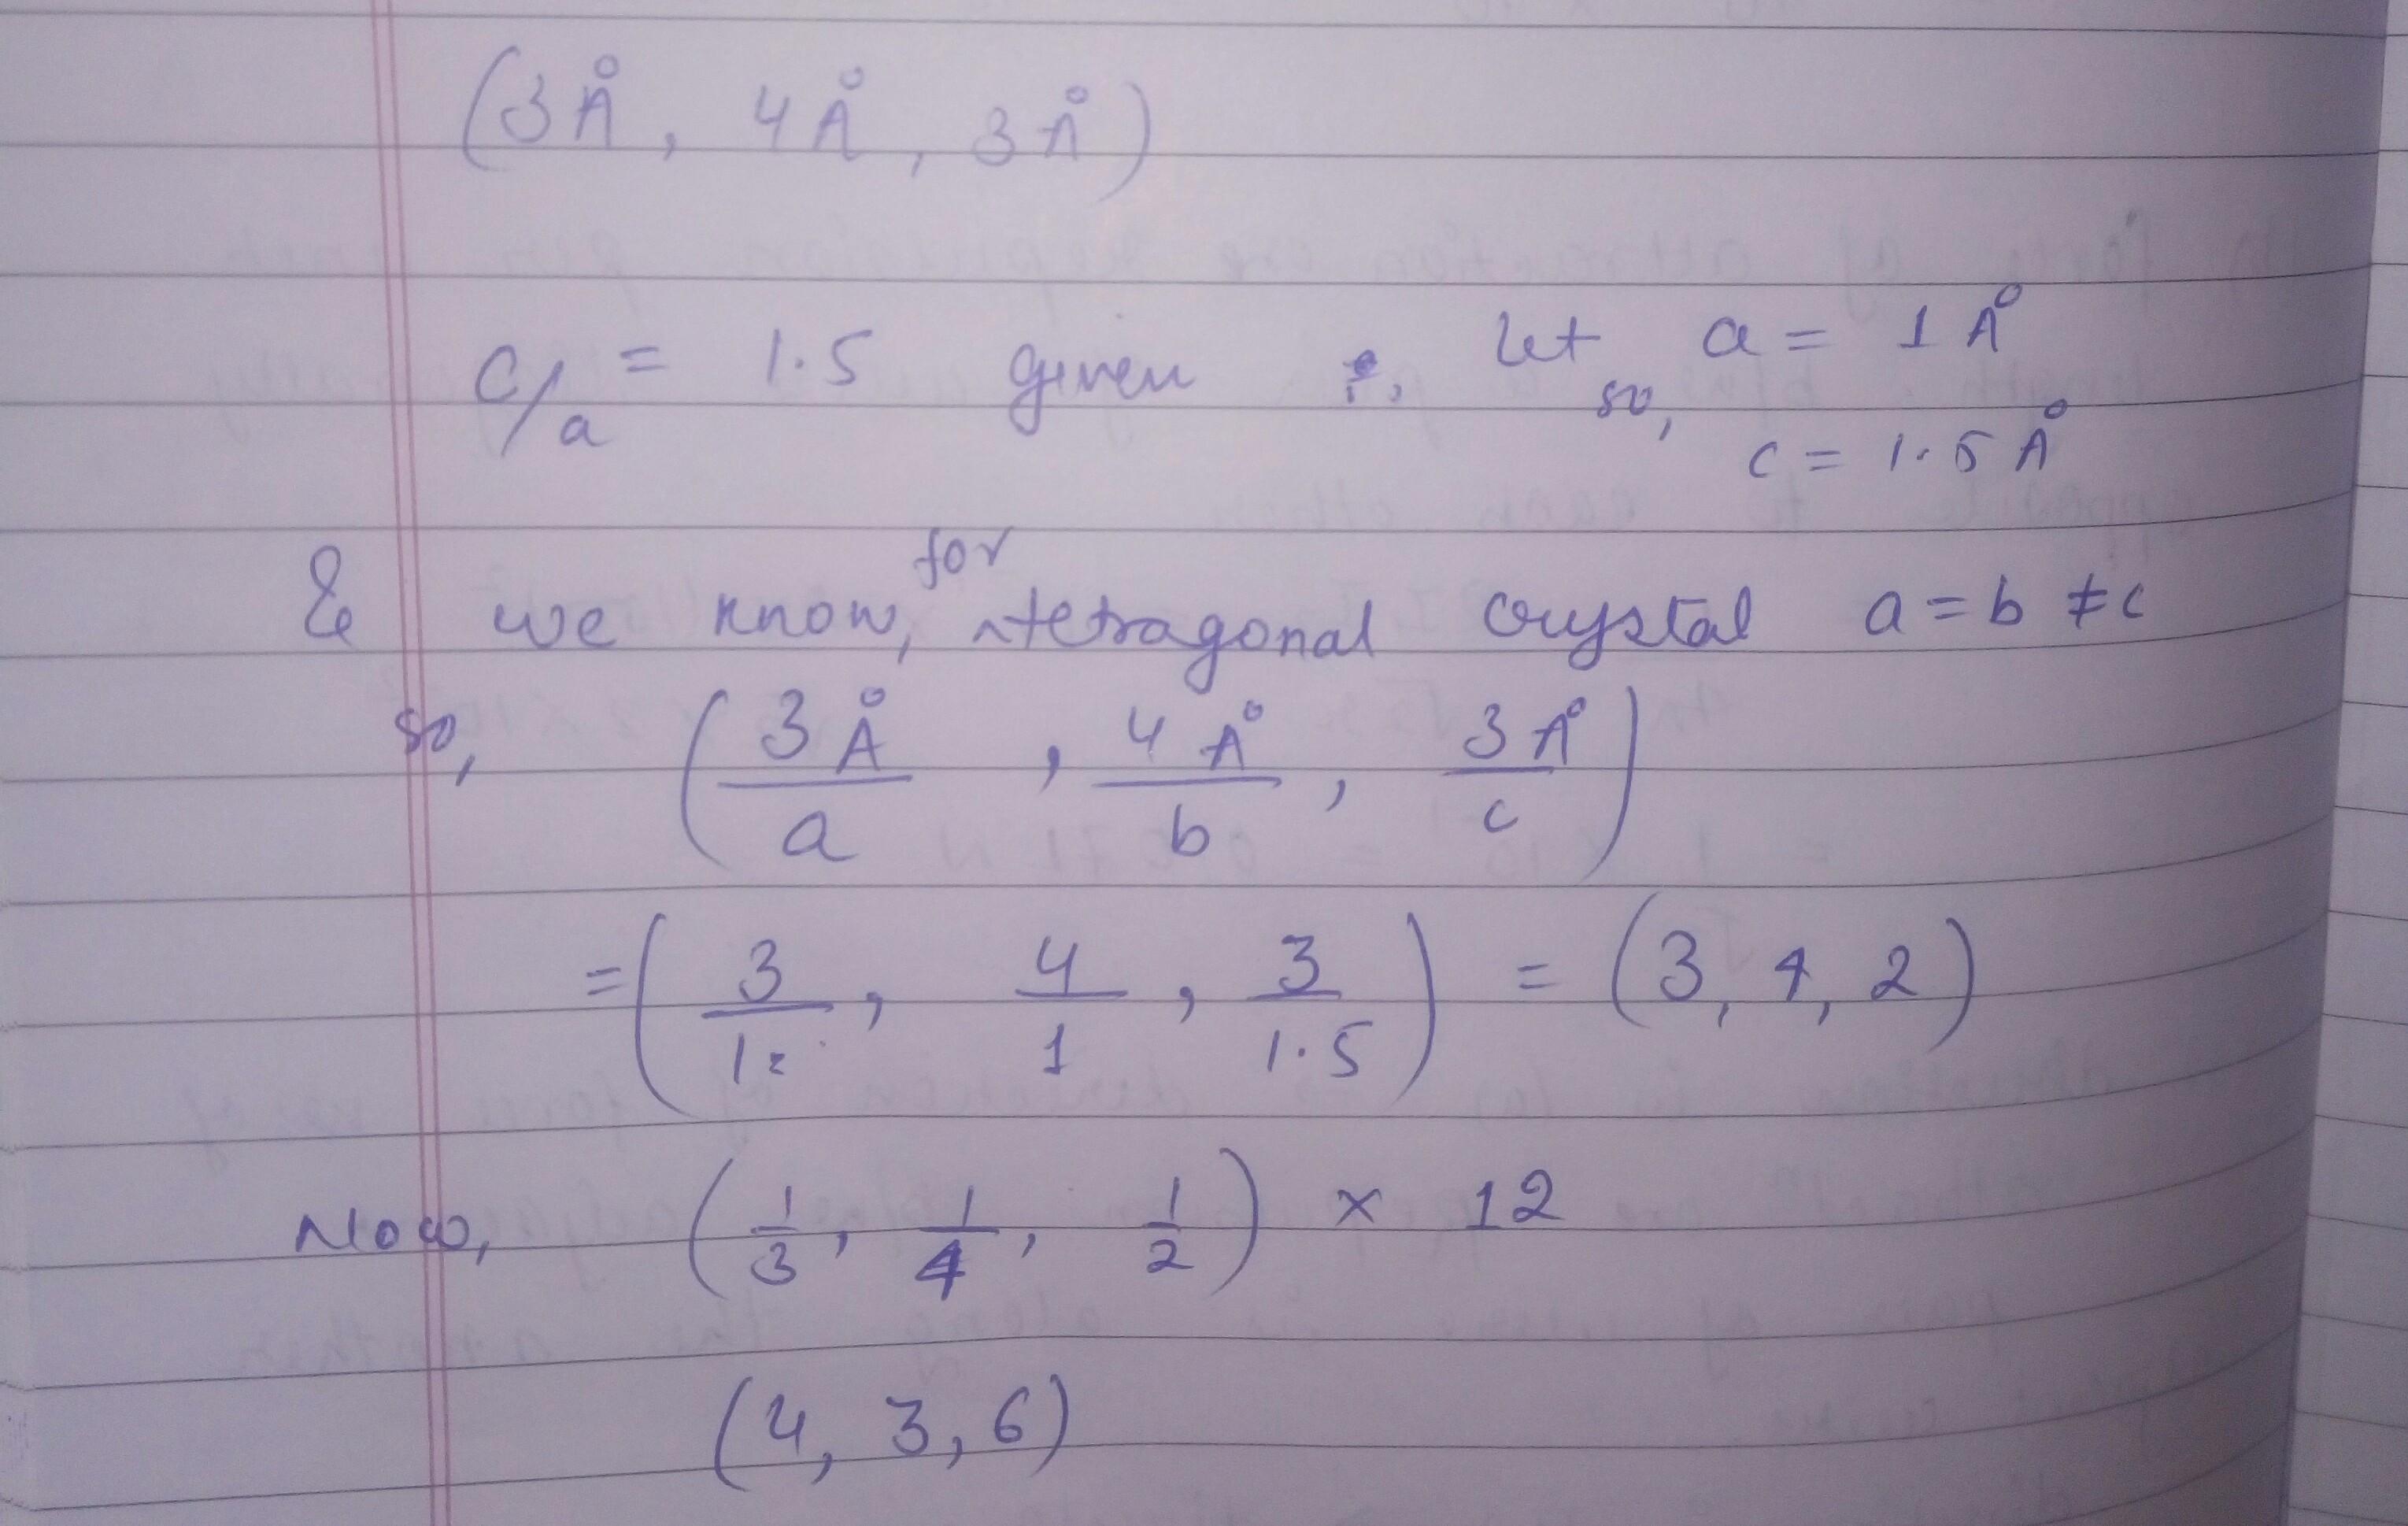 (3Å, 4Å, 3Å)
c/a = 1.5 given, let a = 1 Å
so, c = 1.5 Å
& we know, for tetragonal crystal a = b ≠ c
so, (3Å/a, 4Å/b, 3Å/c)
= (3/1, 4/1, 3/1.5) = (3, 4, 2)
Now, (1/3, 1/4, 1/2) × 12
(4, 3, 6)